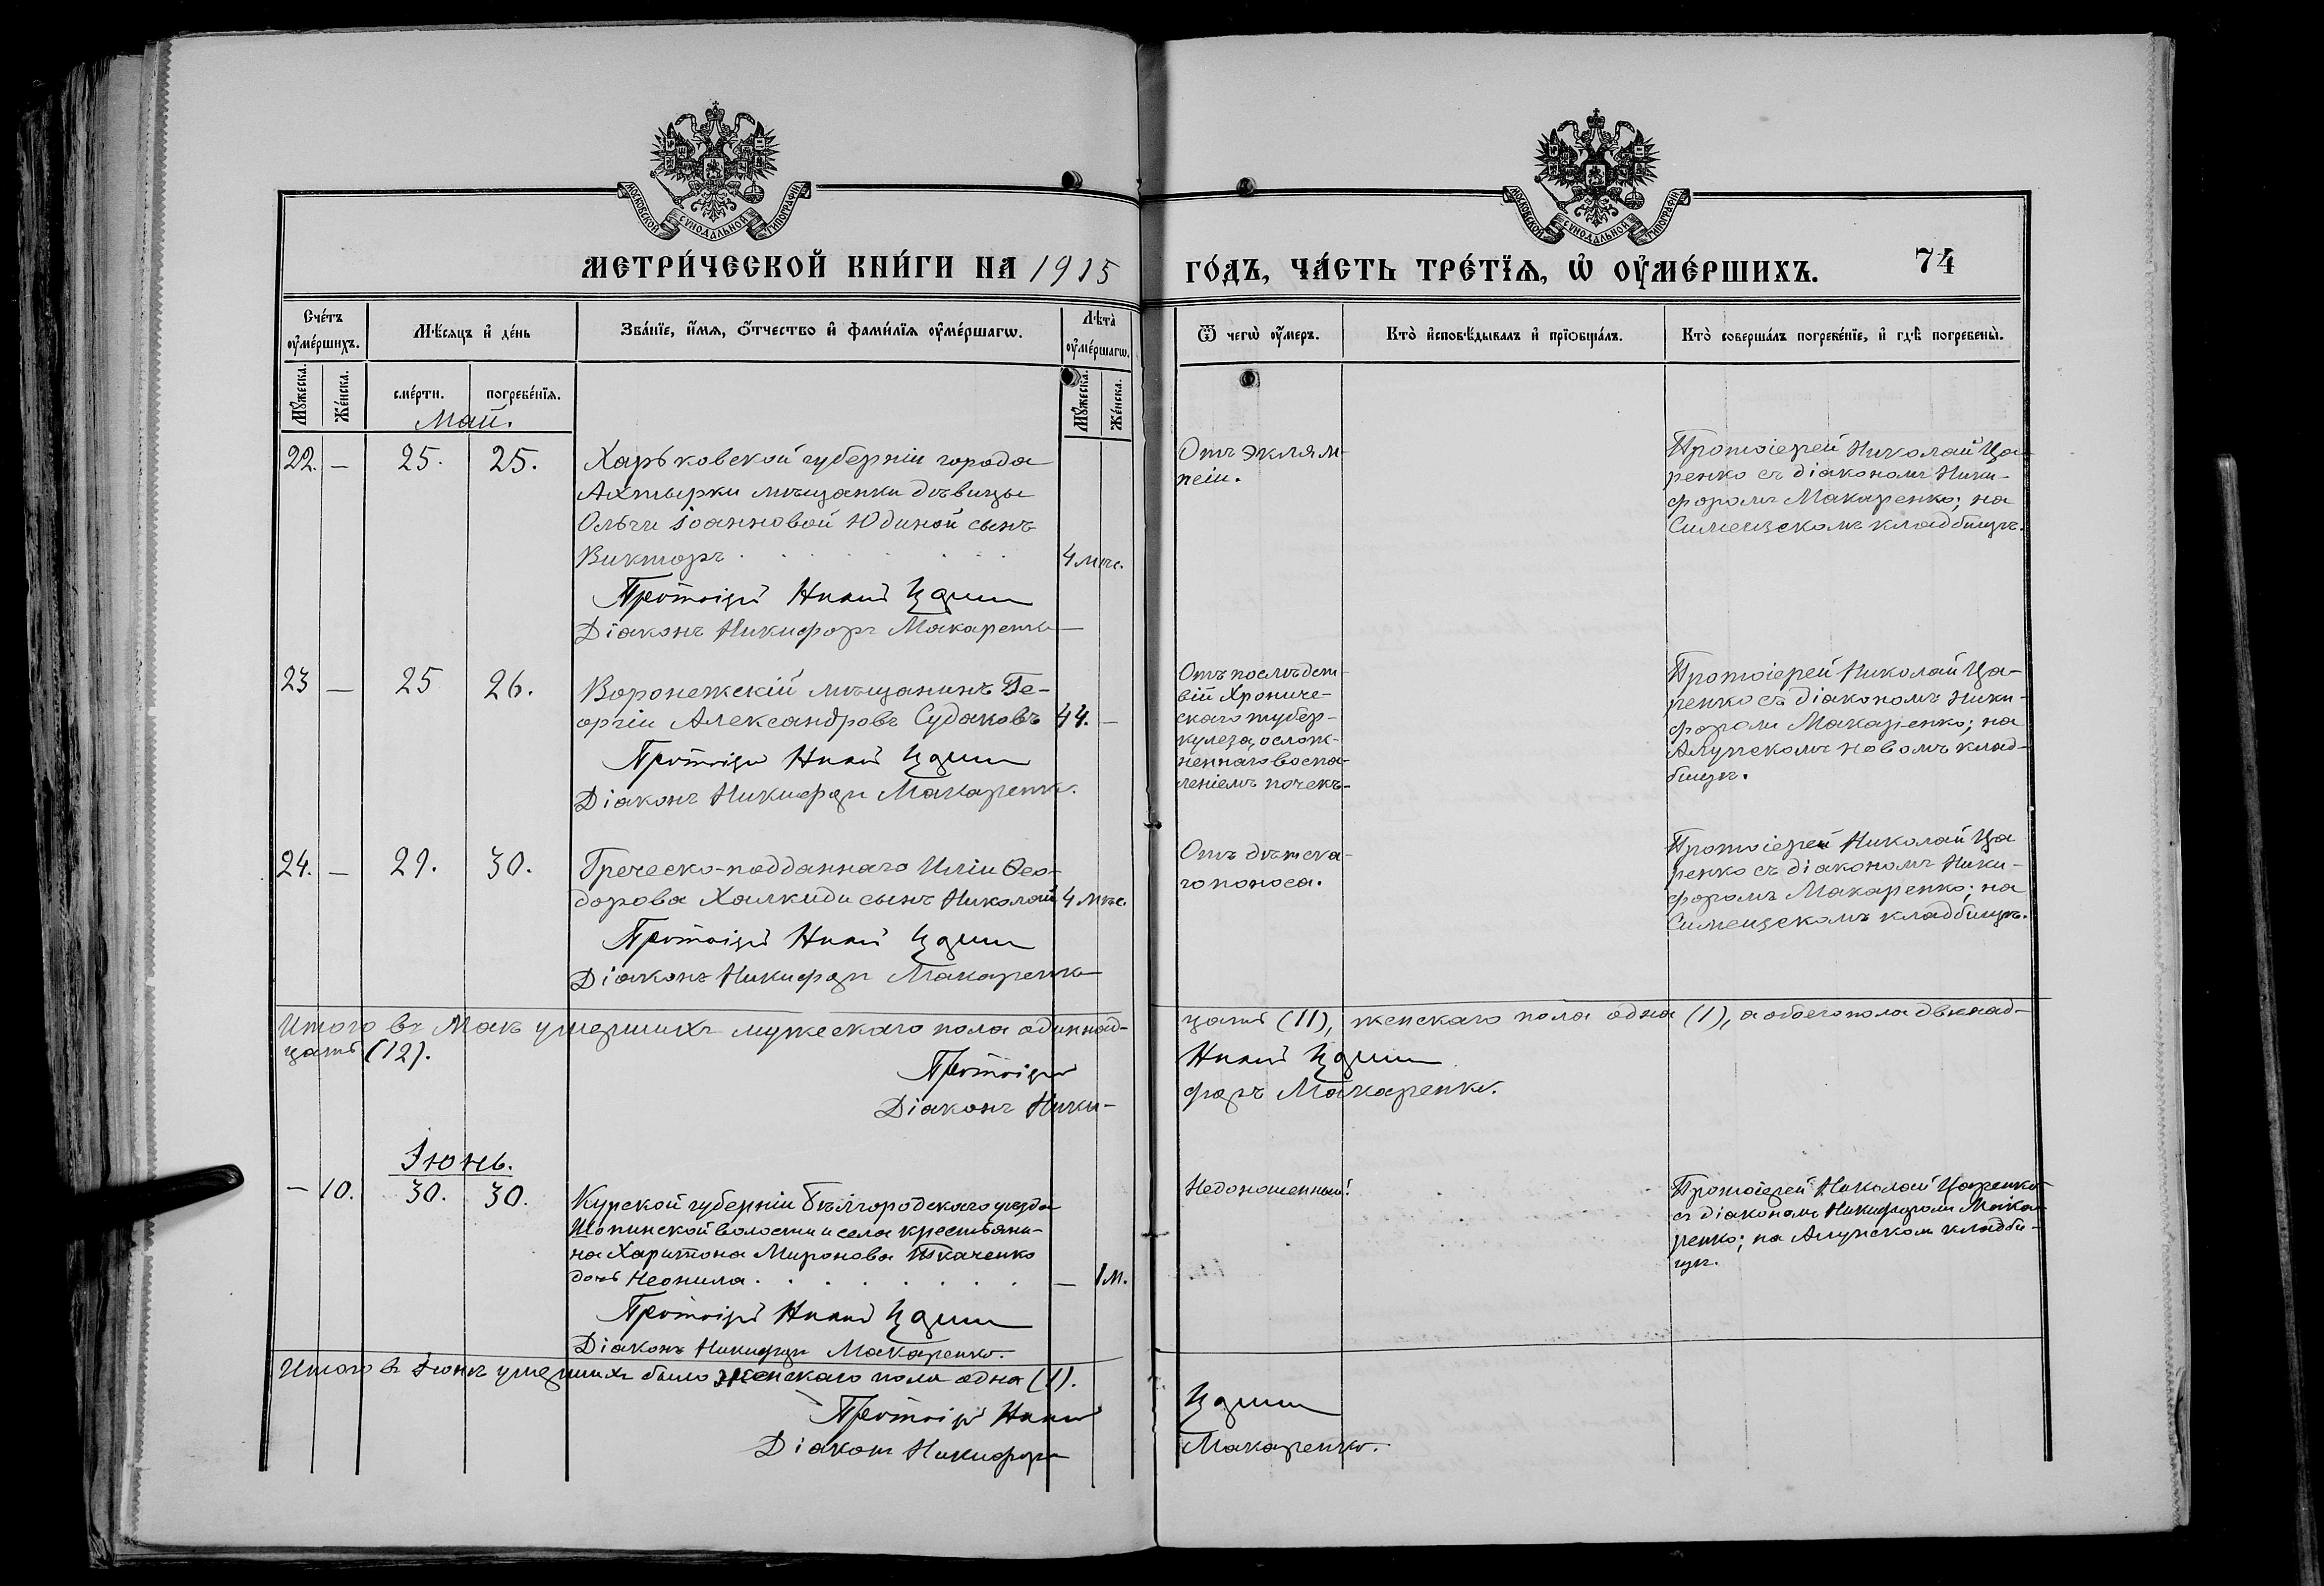 МОСКОВСКОЙ СѴНОДАЛЬНОЙ ТИПОГРАФІИ
МОСКОВСКОЙ СѴНОДАЛЬНОЙ ТИПОГРАФІИ
МЕТРИ́ЧЕСКОЙ КНИ́ГИ НА 1915
ГО́ДЪ, ЧА́СТЬ ТРЕ́ТЇѦ, Ѽ ОУ҆МЕ́РШИХЪ.
74
Сче́тъ оу҆ме́ршихъ.
Мѣ́сяцъ и҆ де́нь
Зва́нїе, и҆́мѧ, ѻ҆́тчество и҆ фами́лїѧ оу҆ме́ршагѡ.
Лѣта̀ оу҆ме́ршагѡ.
Ѿ чегѡ̀ оу҆́меръ.
Кто̀ и҆сповѣ́дывалъ и҆ прїѻбща́лъ.
Кто̀ соверша́лъ погребе́нїе, и҆ гдѣ̀ погребены̀.
Мꙋ́жеска.
Же́нска.
сме́рти.
погребе́нїѧ.
Мꙋ́жеска.
Же́нска.
Май.
22. — 25. 25.
Харьковской губерніи города
Ахтырки мѣщанки дѣвицы
Ольги Іоанновой Юдиной сынъ
Викторъ . . . . . . . 4 мѣс.
Протоіерей Николай Царенко
Діаконъ Никифоръ Макаренко
Отъ эклям-
псіи.
Протоіерей Николай Ца-
ренко съ діакономъ Ники-
форомъ Макаренко; на
Симеизскомъ кладбищѣ.
23 — 25 26.
Воронежскій мѣщанинъ Ге-
оргій Александровъ Судаковъ 44. —
Протоіерей Николай Царенко
Діаконъ Никифоръ Макаренко.
Отъ послѣдст-
вій Хрониче-
скаго тубер-
кулеза, ослож-
неннаго воспа-
леніемъ почекъ-
Протоіерей Николай Ца-
ренко съ діакономъ Ники-
форомъ Макаренко; на
Алупскомъ новомъ клад-
бищѣ.
24. — 29. 30.
Греческо-подданнаго Иліи Ѳео-
дорова Халкиди сынъ Николай 4 мѣс.
Протоіерей Николай Царенко
Діаконъ Никифоръ Макаренко
Отъ дѣтска-
го поноса.
Протоіерей Николай Ца
ренко съ діакономъ Ники-
форомъ Макаренко; на
Симеизскомъ кладбищѣ.
Итого въ Маѣ умершихъ мужескаго пола одиннад-
цать (11), женскаго пола одна (1), а обоего пола двѣнад-
цать (12).
Протоіерей Николай Царенко
Діаконъ Ники-
форъ Макаренко.
Іюнь.
— 10. 30. 30.
Курской губерніи Бѣлгородскаго уѣзда
Шопинской волости и села крестьяни-
на Харитона Миронова Ткаченко
дочь Неонила . . . . . . . — 1 м.
Протоіерей Николай Царенко
Діаконъ Никифоръ Макаренко.
Недоношенный.
Протоіерей Николай Царенко
съ діакономъ Никифоромъ Мака-
ренко; на Алупскомъ кладби-
щѣ.
Итого въ Іюнѣ умершихъ было женскаго пола одна (1).
Протоіерей Николай Царенко
Діаконъ Никифоръ Макаренко.